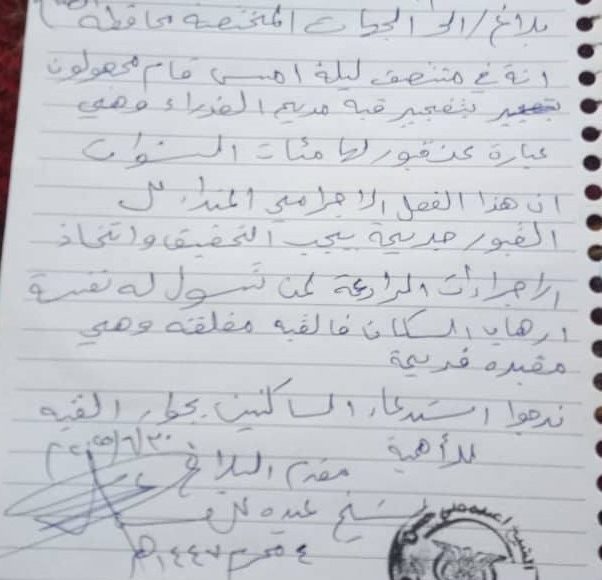 بلاغ / الى الجهات المختصة محافظة
انة في منتصف ليلة امس قام مجهولون
بتفجير قبه مريم العذراء وهي
عبارة عن قبور لها مئات السنوات
ان هذا الفعل الاجرامي
القبور جريمة يجب التحقيق واتخاذ
الاجراءات الرادعة لمن تسول له نفسة
ارهاب السكان فالقبه مغلقه وهي
مقبره قديمة
ندعوا استدعاء الساكنين بجوار القبه
للأهمية
مقدم البلاغ
الشيخ عبده
٤ محرم ١٤٤٧ه
٢٠٢٥/٦/٣٠
الشيخ